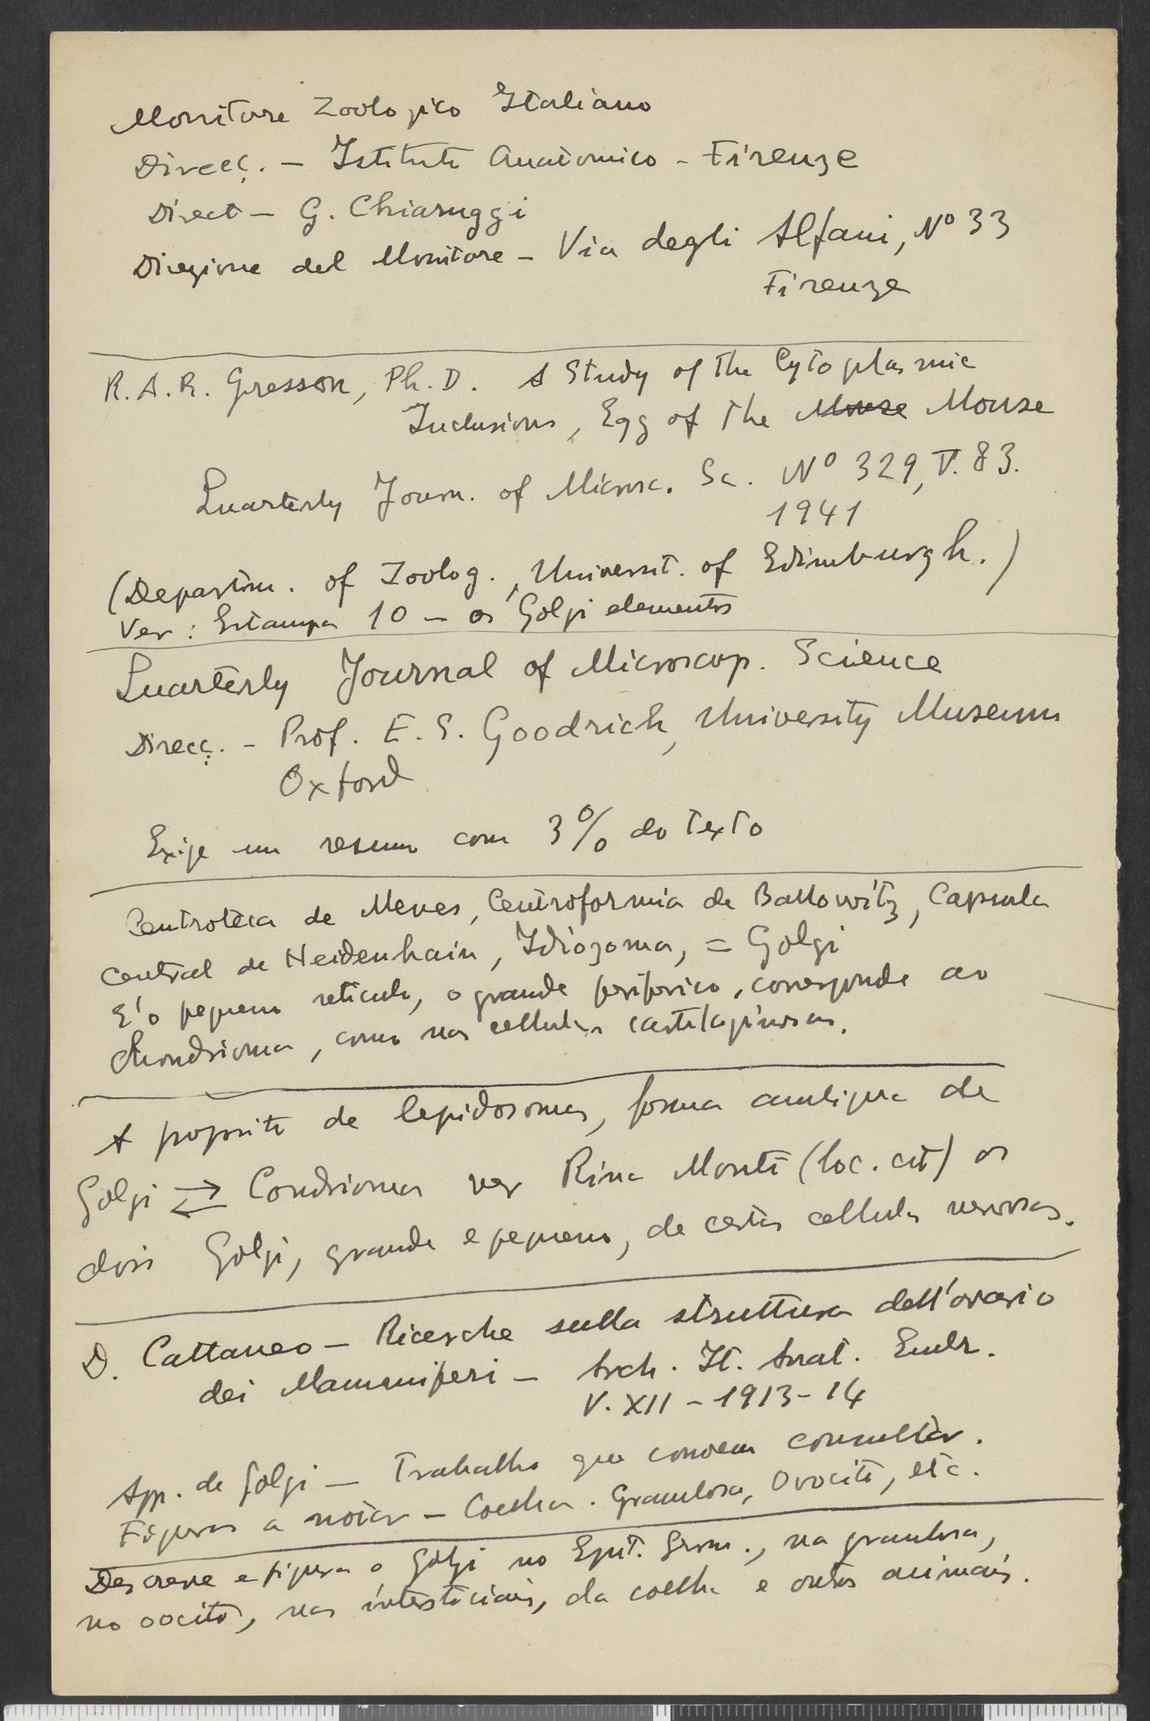 Monitore Zoologico Italiano
Direcç. - Istituto Anatomico - Firenze
Direct - G. Chiaruggi
Direzione del Monitore - Via degli Alfani, Nº 33
Firenze
R. A. R. Gresson, Ph. D. A Study of the Cytoplasmic
Inclusions, Egg of the Mouse Mouse
Quarterly Journ. of Microsc. Sc. Nº 329, V. 83.
1941
(Departm. of Zoolog., Universit. of Edimburgh.)
Ver: Estampa 10 - os Golgi elements
Quarterly Journal of Microscop. Science
Direcç. - Prof. E. S. Goodrich, University Museum
Oxford
Exije um resumo com 3% do texto
Centroteca de Meves, Centroformia de Ballowitz, Capsula
central de Heidenhain, Idiozoma, = Golgi
E' o pequeno reticulo, o grande periferico, corresponde ao
Chondrioma, como nas cellulas cartilaginosas.
A proposito de lepidosomas, forma ambigua de
Golgi ⇄ Condriomas ver Rina Monti (loc. cit) os
dois Golgi, grande e pequeno, de certas cellulas nervosas.
D. Cattaneo - Ricerche sulla struttura dell'ovario
dei Mammiferi - Arch. It. Anat. Embr.
V. XII - 1913-14
App. de Golgi - Trabalho que convem consultar.
Figuras a notar - Coelha. Granulosa, Ovocito, etc.
Descreve e figura o Golgi no Epit. Germ., na granulosa,
no oocito, nas intersticiais, da coelha e outros animais.